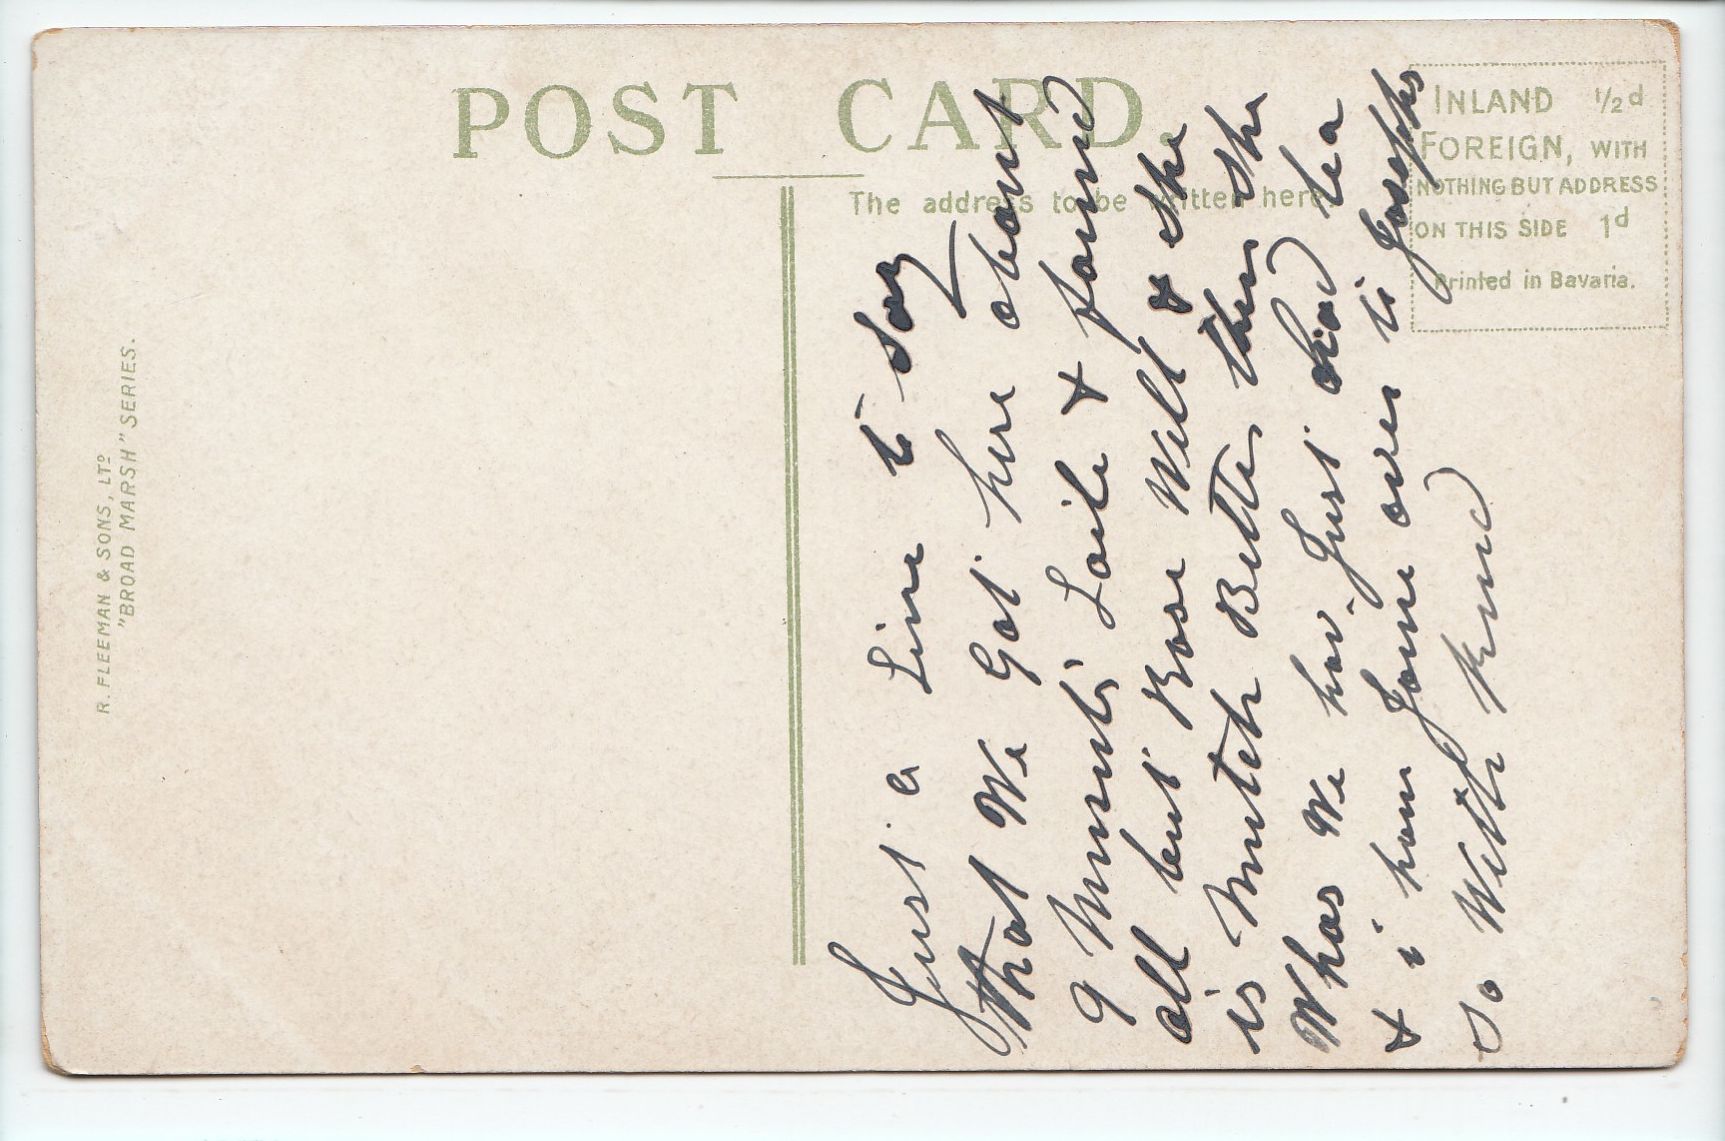 POST CARD
The address to be written here.
INLAND ½d
FOREIGN, WITH
NOTHING BUT ADDRESS
ON THIS SIDE 1d
Printed in Bavaria.
R. FLEEMAN & SONS, LTD
"BROAD MARSH" SERIES.
Just a Line to say
that We Got here about
9 Munits Laite & found
all but Rose Well & she
is Mutch Better then she
Whas We hav Just had tea
& i have Gone over to Josephs
so With Kind